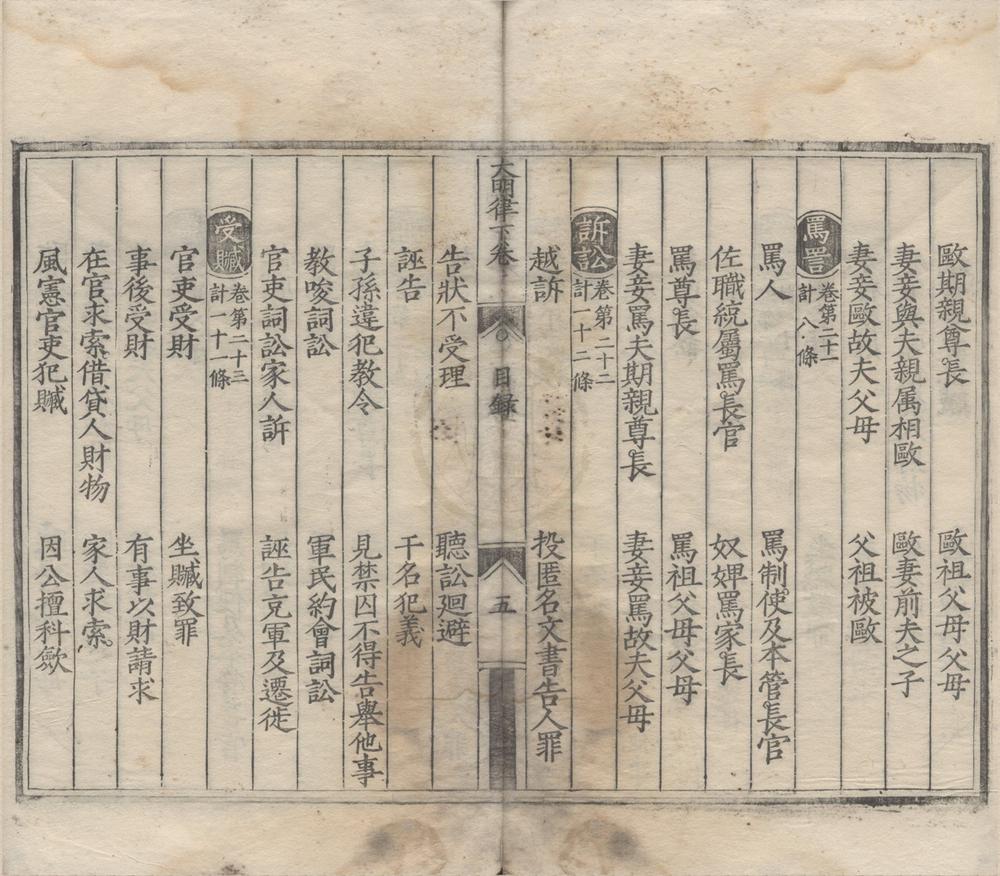 歐期親尊長 歐祖父母父母
妻妾與夫親属相歐 歐妻前夫之子
妻妾歐故夫父母 父祖被歐
罵詈 卷第二十一 計八條
罵人 罵制使及本管長官
佐職統屬罵長官 奴婢罵家長
罵尊長 罵祖父母父母
妻妾罵夫期親尊長 妻妾罵故夫父母
訴訟 卷第二十二 計一十二條
越訴 投匿名文書告人罪
大明律下卷 目録 五
告狀不受理 聽訟廻避
誣告 干名犯義
子孫違犯教令 見禁囚不得告舉他事
教唆詞訟 軍民約會詞訟
官吏詞訟家人訴 誣告充軍及遷徙
受贓 卷第二十三 計一十一條
官吏受財 坐贓致罪
事後受財 有事以財請求
在官求索借貸人財物 家人求索
風憲官吏犯贓 因公擅科歛